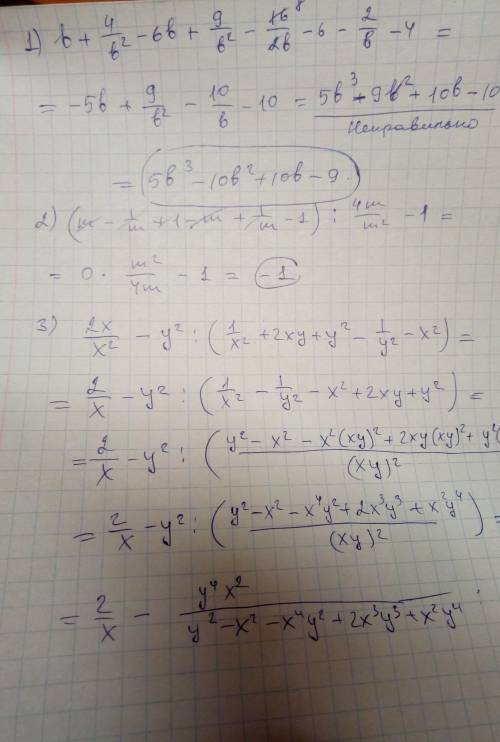 1) b + 4/b² - 6b + 9/b² - 16⁸/2b - 6 - 2/b - 4 =
= -5b + 9/b² - 10/b - 10 = 5b³ + 9b² + 10b - 10
Неправильно
= 5b³ - 10b² + 10b - 9.
2) (m - 1/m + 1 - m + 1/m - 1) : 4m/m² - 1 =
= 0 · m²/4m - 1 = -1
3) 2x/x² - y² : (1/x² + 2xy + y² - 1/y² - x²) =
= 2/x - y² : (1/x² - 1/y² - x² + 2xy + y²) =
= 2/x - y² : (y² - x² - x²(xy)² + 2xy(xy)² + y²(/(xy)²
= 2/x - y² : (y² - x² - x⁴y² + 2x³y³ + x²y⁴/(xy)²) =
= 2/x - y⁴x²/y² - x² - x⁴y² + 2x³y³ + x²y⁴ :